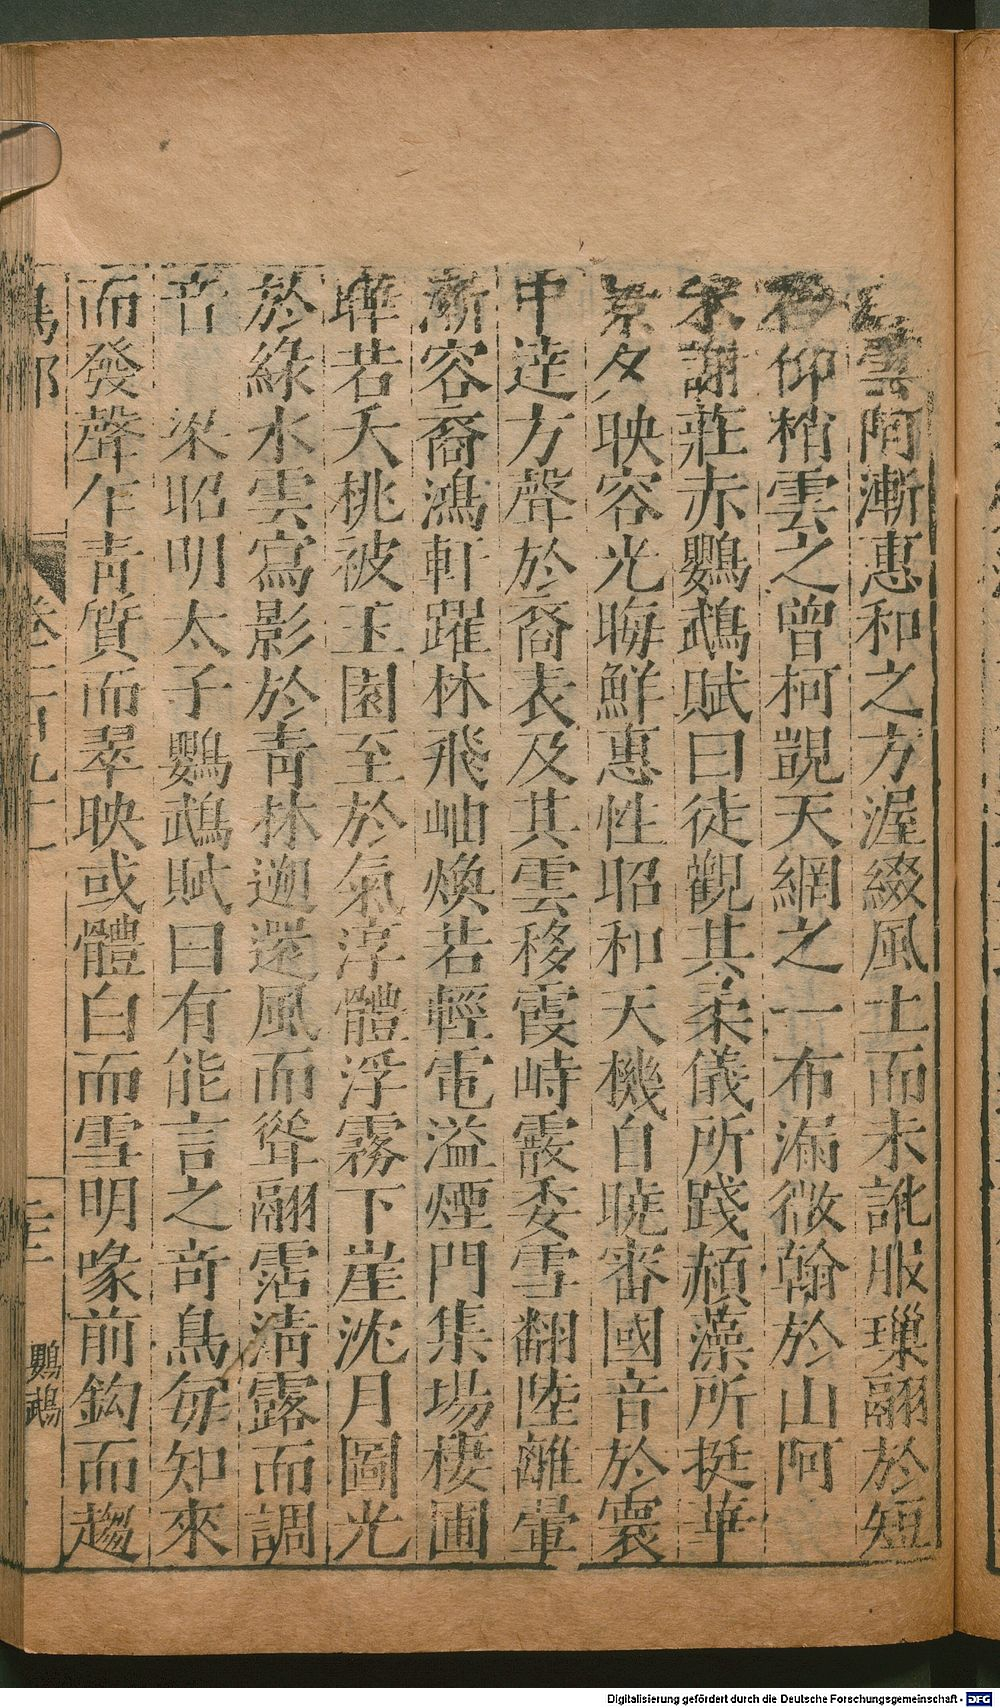 雲阿漸惠和之方渥綴風土而未訛服璅翮於短
仰梢雲之曾柯覬天網之一布漏微翰於山阿
宋謝莊赤鸚鵡賦曰徒觀其柔儀所踐赬藻所挺華
景夕映容光晦鮮惠性昭和天機自曉審國音於寰
中達方聲於裔表及其雲移霞峙霰委雪翻陸離暈
漸容裔鴻軒躍林飛岫煥若輕電溢煙門集場棲圃
曄若夭桃被玉園至於氣淳體浮霧下崖沈月圖光
於綠水雲寫影於青林遡還風而聳翮霑清露而調
音　梁昭明太子鸚鵡賦曰有能言之奇鳥每知來
而發聲乍青質而翠映或體白而雪明喙前鉤而趨
鳥部
卷二百九十二
鸚鵡
Digitalisierung gefördert durch die Deutsche Forschungsgemeinschaft - DFG